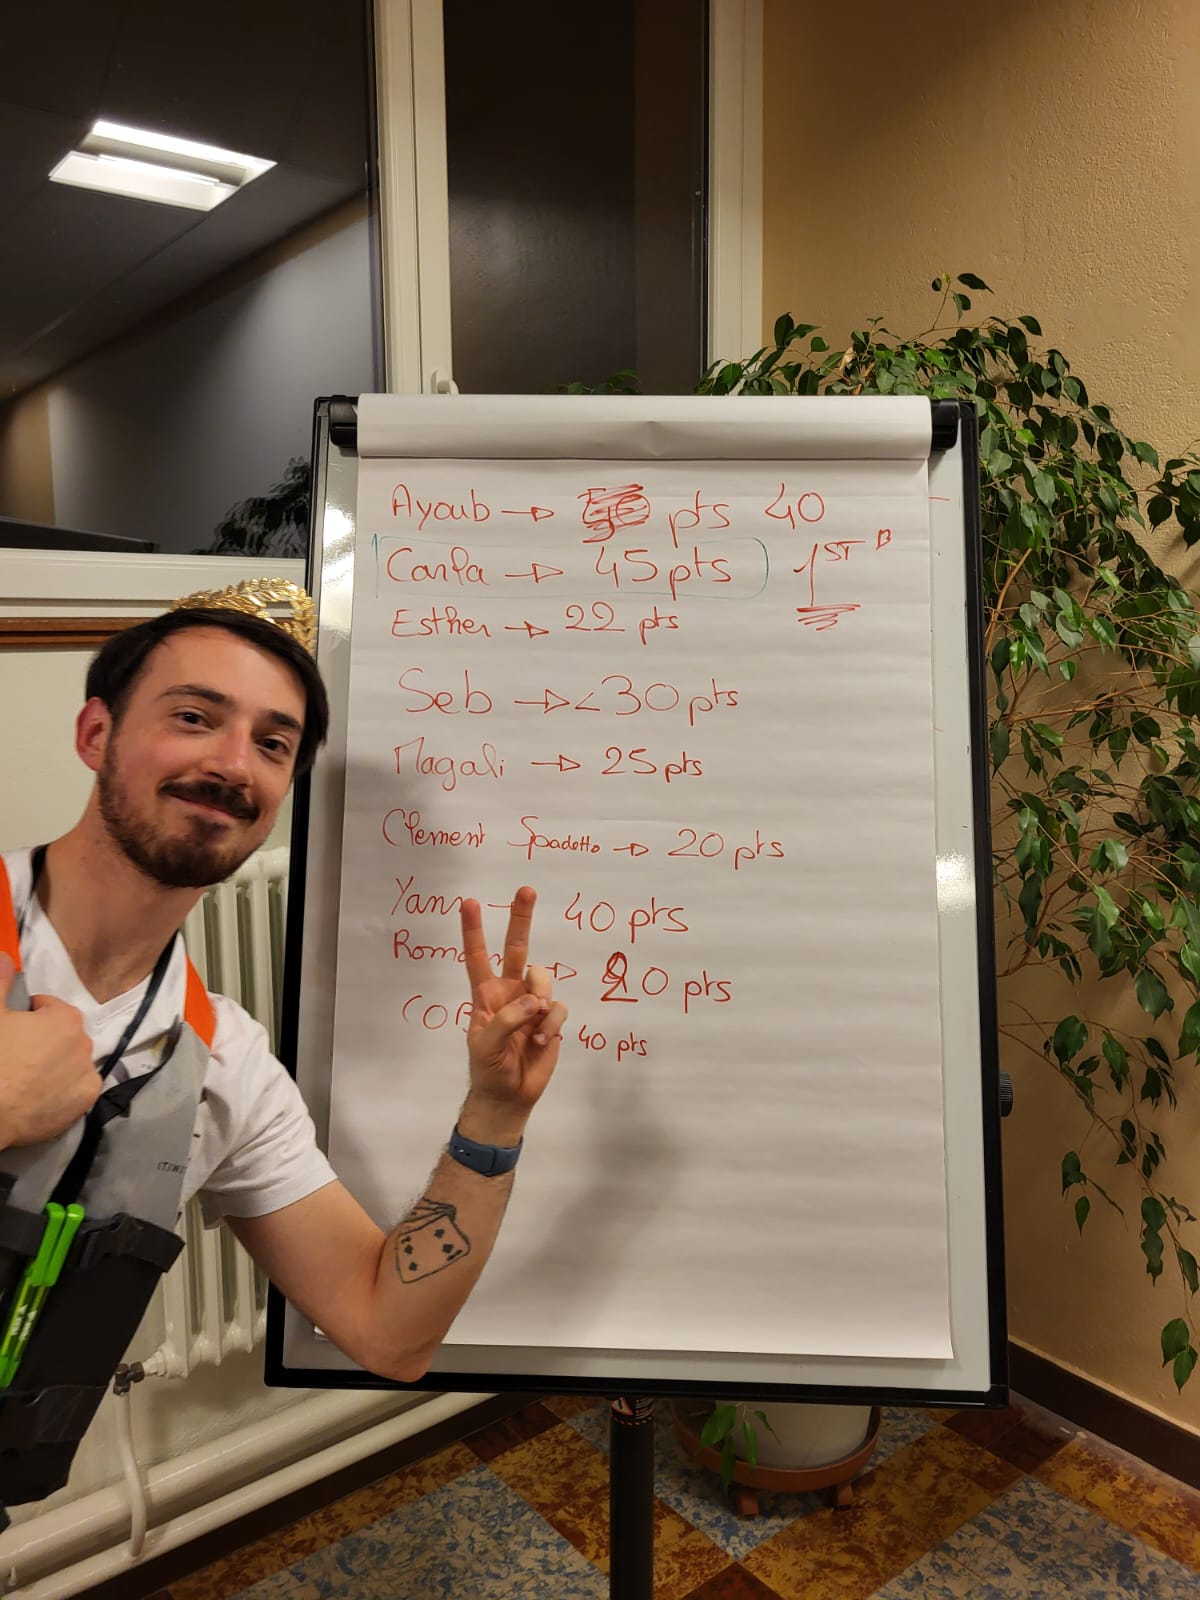 Ayoub → pts 40
Carla → 45 pts 1ST
Esther → 22 pts
Seb → < 30 pts
Magali → 25 pts
Clement Spadetto → 20 pts
Yann → 40 pts
→ 20 pts
40 pts